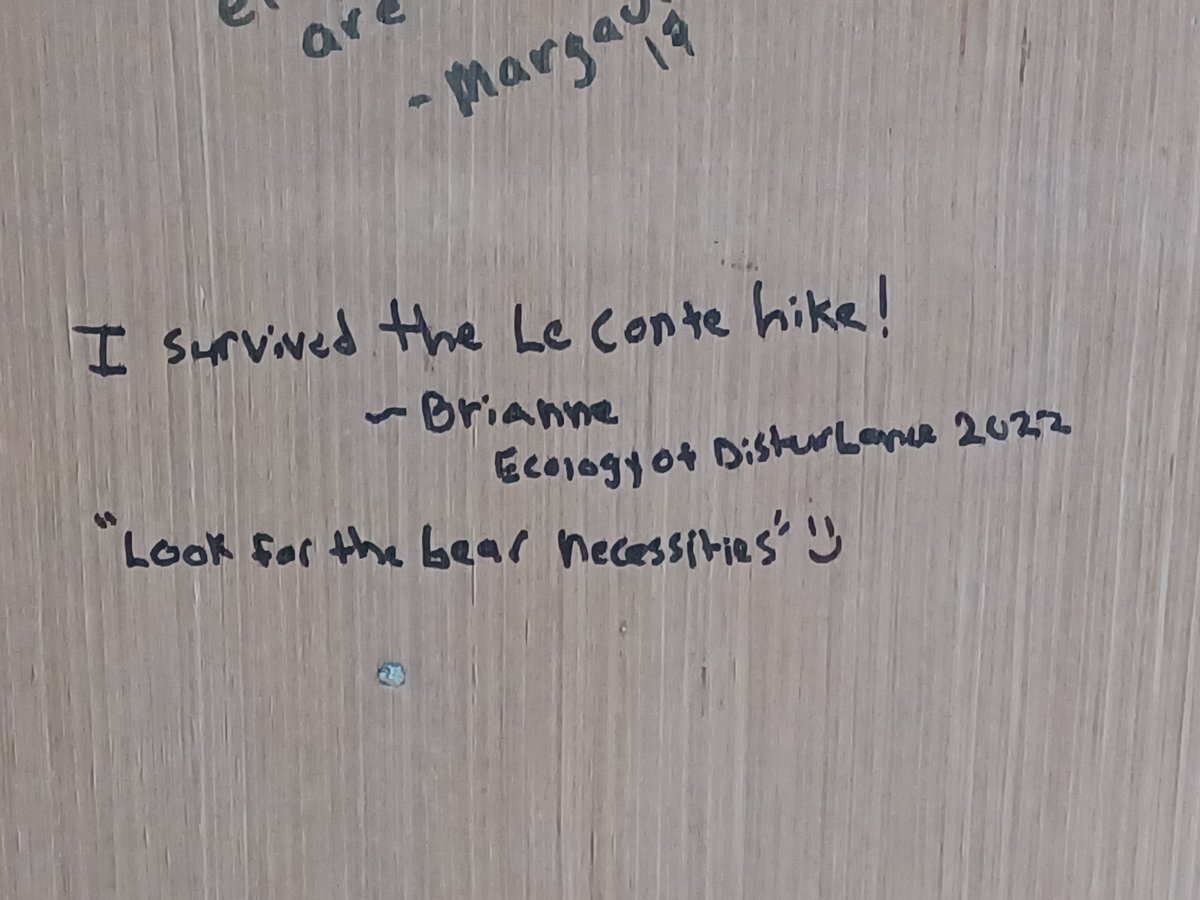 are
- Marga
19
I survived the Le Conte hike!
~ Brianne
Ecology of Disturbance 2022
"Look for the bear necessities" :)